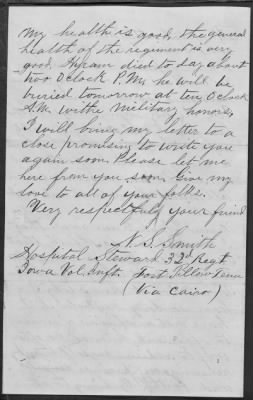 My health is good, the general
health of the regiment is very
good, Hiram died to day about
two Oclock P.M. he will be
buried tomorrow at ten Oclock
A.M. withe Military honors,
I will bring my letter to a
close promising to write you
again soon. Please let me
here from you soon. Give my
love to all of your folks.
Very respectfuly your friend
N. S. Smyth
Hospital Steward 32d Regt
Iowa Vol. Infty. Fort Pillow Tenn
(Via Cairo)